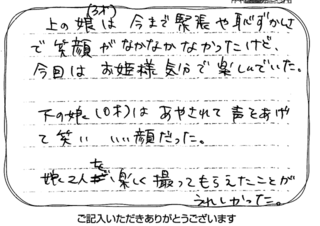 上の娘(3才)は 今まで緊張や恥ずかしさ
で笑顔がなかなかなかったけど、
今回は お姫様気分で楽しんでいた。
下の娘(0才)は あやされて 声をあげ
て笑い いい顔だった。
娘2人とも 楽しく 撮ってもらえたことが
うれしかった。
ご記入いただきありがとうございます